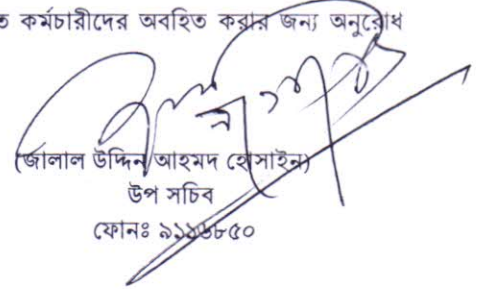 ত কর্মচারীদের অবহিত করার জন্য অনুরোধ
(জালাল উদ্দিন আহমদ হোসাইন)
উপ সচিব
ফোনঃ ৯১১৬৮৫০